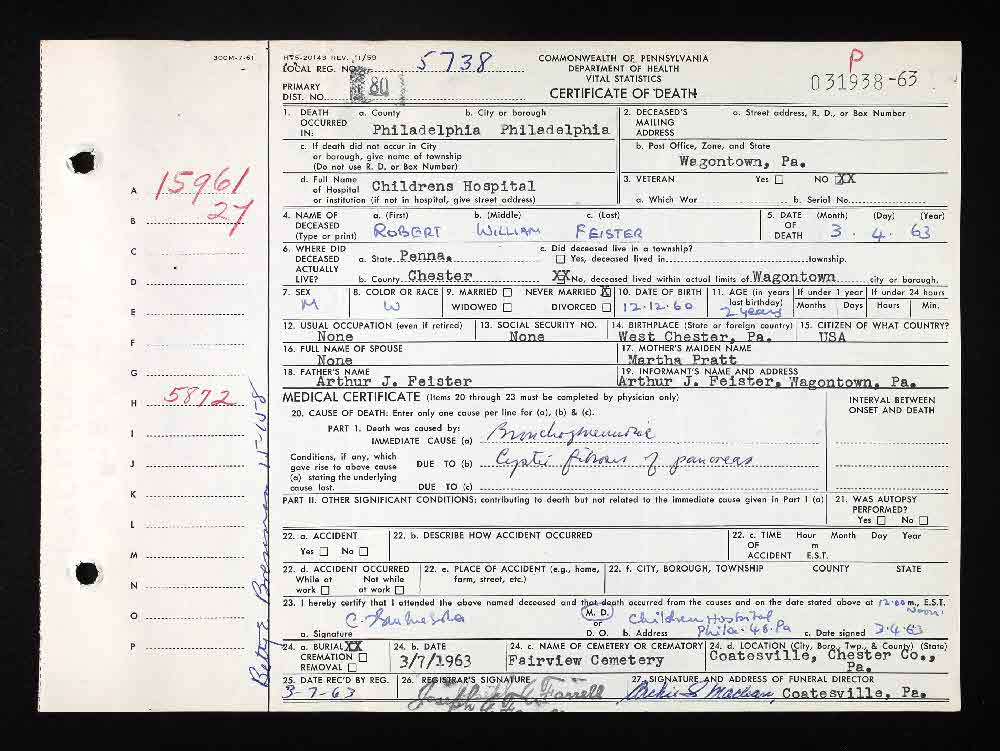 300M-7-61
H75-20143 REV. 11/59
LOCAL REG. NO. 5738
PRIMARY
DIST. NO. 80
COMMONWEALTH OF PENNSYLVANIA
DEPARTMENT OF HEALTH
VITAL STATISTICS
CERTIFICATE OF DEATH
P
031938-63
1. DEATH OCCURRED IN: a. County b. City or borough
Philadelphia Philadelphia
c. If death did not occur in City
or borough, give name of township
(Do not use R. D. or Box Number)
d. Full Name
of Hospital Childrens Hospital
or institution (if not in hospital, give street address)
2. DECEASED'S MAILING ADDRESS a. Street address, R. D., or Box Number
b. Post Office, Zone, and State
Wagontown, Pa.
3. VETERAN Yes NO XX
a. Which War b. Serial No.
4. NAME OF DECEASED (Type or print) a. (First) b. (Middle) c. (Last)
ROBERT WILLIAM FEISTER
5. DATE OF DEATH (Month) (Day) (Year)
3 . 4 . 63
6. WHERE DID DECEASED ACTUALLY LIVE? a. State Penna.
b. County Chester
c. Did deceased live in a township?
Yes, deceased lived in township.
XX No, deceased lived within actual limits of Wagontown city or borough.
7. SEX M
8. COLOR OR RACE W
9. MARRIED NEVER MARRIED X
WIDOWED DIVORCED
10. DATE OF BIRTH 12-12-60
11. AGE (in years last birthday) 2 years
If under 1 year Months Days
If under 24 hours Hours Min.
12. USUAL OCCUPATION (even if retired) None
13. SOCIAL SECURITY NO. None
14. BIRTHPLACE (State or foreign country) West Chester, Pa.
15. CITIZEN OF WHAT COUNTRY? USA
16. FULL NAME OF SPOUSE None
17. MOTHER'S MAIDEN NAME Martha Pratt
18. FATHER'S NAME Arthur J. Feister
19. INFORMANT'S NAME AND ADDRESS Arthur J. Feister, Wagontown, Pa.
MEDICAL CERTIFICATE (Items 20 through 23 must be completed by physician only)
20. CAUSE OF DEATH: Enter only one cause per line for (a), (b) & (c).
INTERVAL BETWEEN
ONSET AND DEATH
PART 1. Death was caused by:
IMMEDIATE CAUSE (a) Bronchopneumonia
Conditions, if any, which
gave rise to above cause
(a) stating the underlying
cause last.
DUE TO (b) Cystic fibrosis of pancreas
DUE TO (c)
PART II. OTHER SIGNIFICANT CONDITIONS; contributing to death but not related to the immediate cause given in Part 1 (a)
21. WAS AUTOPSY
PERFORMED?
Yes No
22. a. ACCIDENT
Yes No
22. b. DESCRIBE HOW ACCIDENT OCCURRED
22. c. TIME OF ACCIDENT Hour Month Day Year
m
E.S.T.
22. d. ACCIDENT OCCURRED
While at work Not while at work
22. e. PLACE OF ACCIDENT (e.g., home,
farm, street, etc.)
22. f. CITY, BOROUGH, TOWNSHIP COUNTY STATE
23. I hereby certify that I attended the above named deceased and that death occurred from the causes and on the date stated above at 12:00 m., E.S.T.
Noon
a. Signature
M. D.
or
D. O. b. Address Children Hospital
Phila. 46. Pa
c. Date signed 3-4-63
24. a. BURIAL XX
CREMATION
REMOVAL
24. b. DATE
3/7/1963
24. c. NAME OF CEMETERY OR CREMATORY
Fairview Cemetery
24. d. LOCATION (City, Boro, Twp., & County) (State)
Coatesville, Chester Co.,
Pa.
25. DATE REC'D BY REG.
3-7-63
26. REGISTRAR'S SIGNATURE
Farrell
27. SIGNATURE AND ADDRESS OF FUNERAL DIRECTOR
Maclean, Coatesville, Pa.
A 15961
B 27
C
D
E
F
G
H 5872
I
J
K
L
M
N
O
P